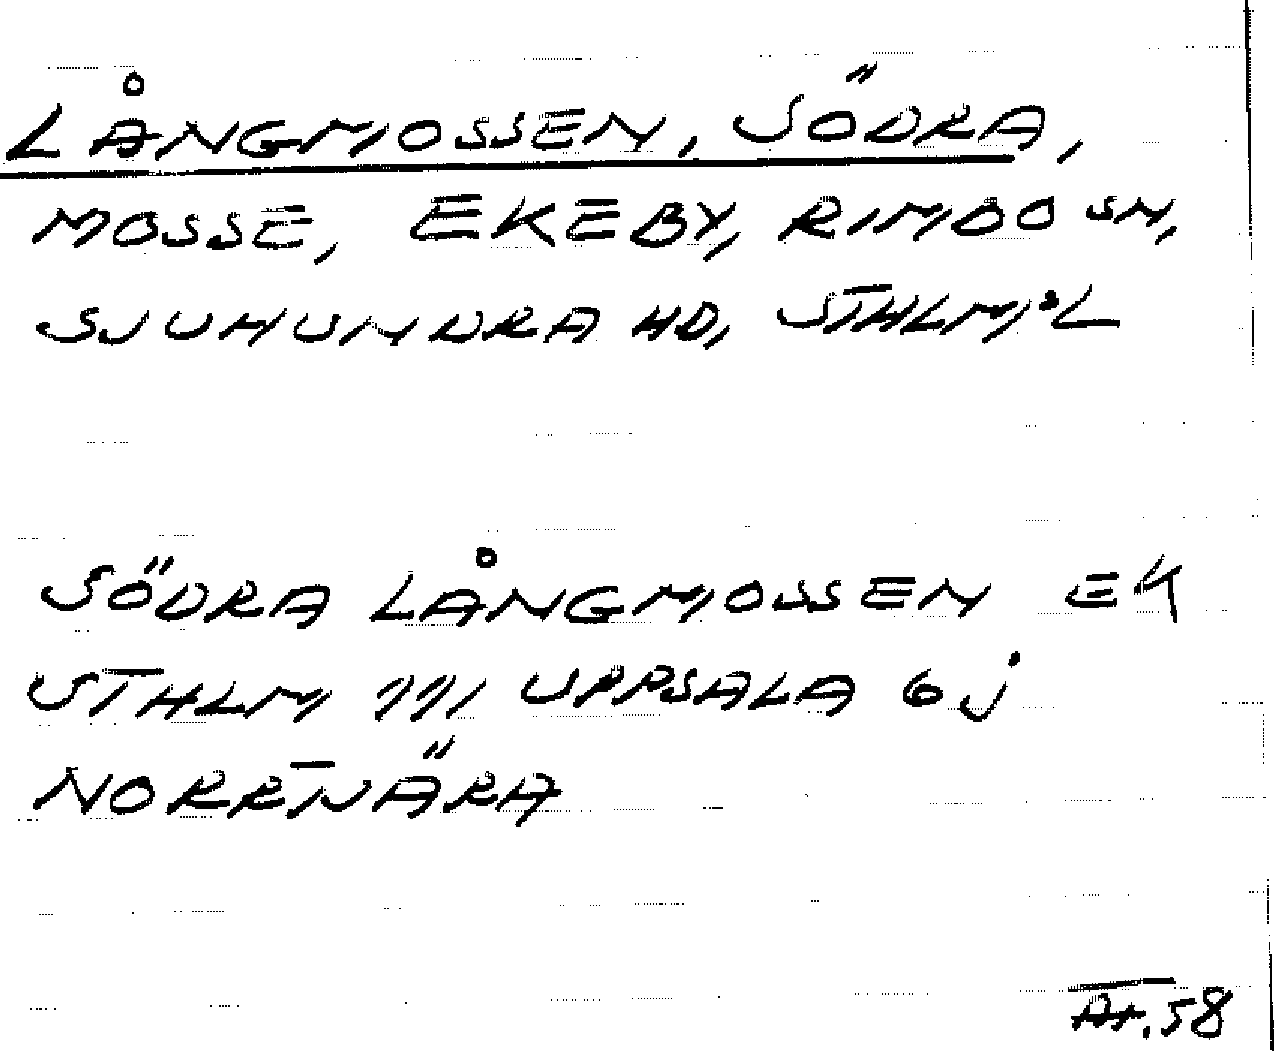 LÅNGMOSSEN, SÖDRA,
MOSSE, EKEBY, RIMBO SN,
SJUHUNDRA HD, STHLM:L
SÖDRA LÅNGMOSSEN EK
STHLM 111, UPPSALA 6 J
NORRTNÄRA
At. 58